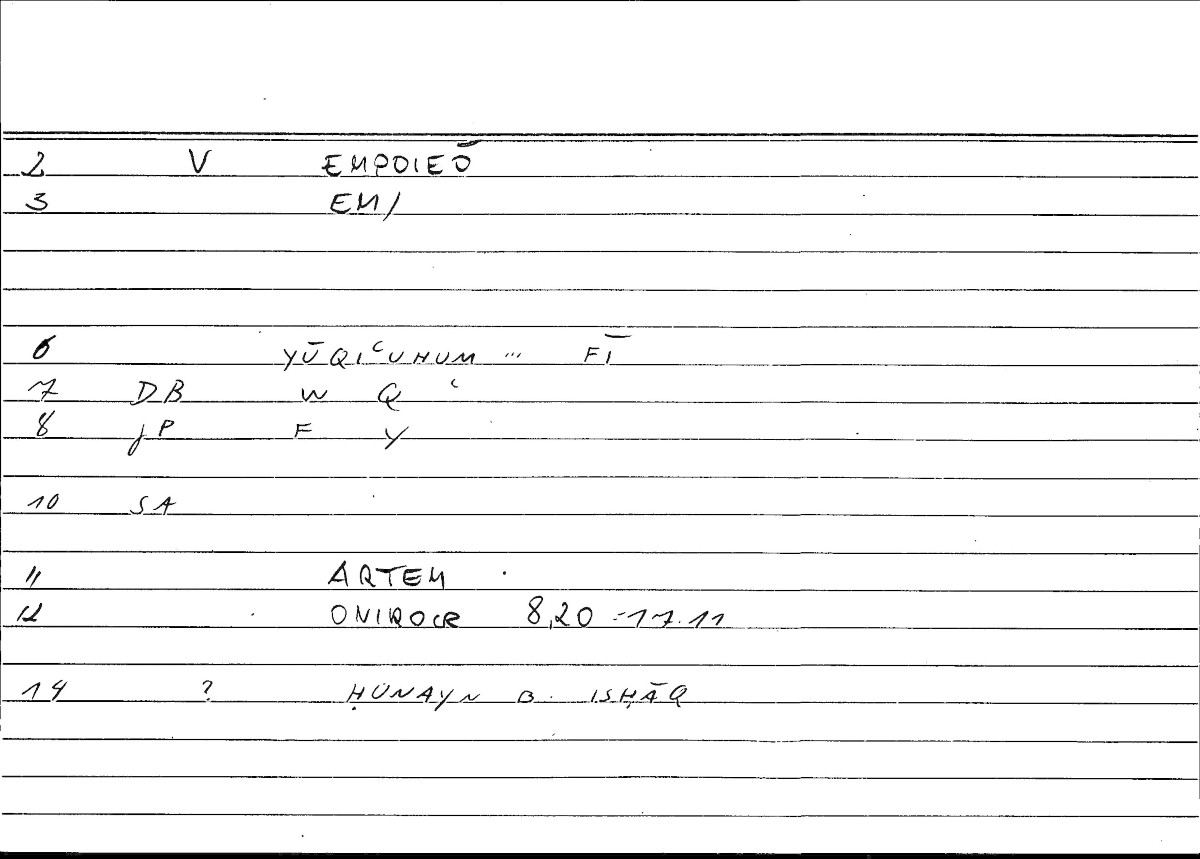 2 V EMPOIEŌ
3 EM/
6 YŪQIʿUHUM ... FĪ
7 DB W Q ʿ
8 JP F Y
10 SA
11 ARTEM
12 ONIROCR 8,20 - 17.11
14 ? ḤUNAYN B. ISḤĀQ